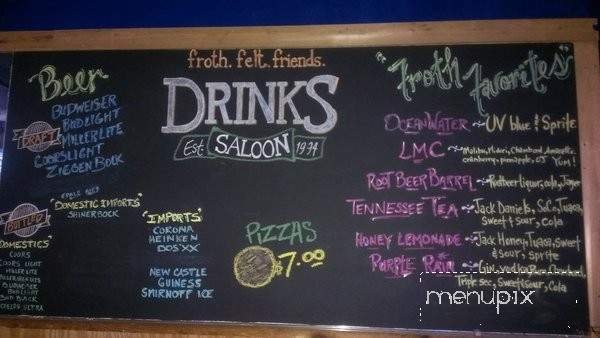 froth. felt. friends.
DRINKS
Est. SALOON 1974
Beer
DRAFT
BUDWEISER
BUD LIGHT
MILLER LITE
COORS LIGHT
ZIEGENBOCK
BOTTLED
DOMESTICS
COORS
COORS LIGHT
MILLER LITE
BUDWEISER
BUD LIGHT
ULTRA
"DOMESTIC IMPORTS"
SHINERBOCK
"IMPORTS"
CORONA
HEINKEN
DOS XX
NEW CASTLE
GUINESS
SMIRNOFF ICE
PIZZAS
$7.00
"Froth Favorites"
OCEANWATER UV blue & Sprite
LMC Malibu, Midori, Chambord, Amaretto,
cranberry, pineapple, OJ YUM!
ROOT BEER BARREL Rootbeer liquor, cola, Jager
TENNESSEE TEA Jack Daniels, So.Co, Tuaca,
Sweet & Sour, Cola
HONEY LEMONADE Jack Honey, Tuaca, Sweet
& Sour, Sprite
PURPLE RAIN Gin, vodka, rum,
Triple sec, Sweet & Sour, Cola
menupix